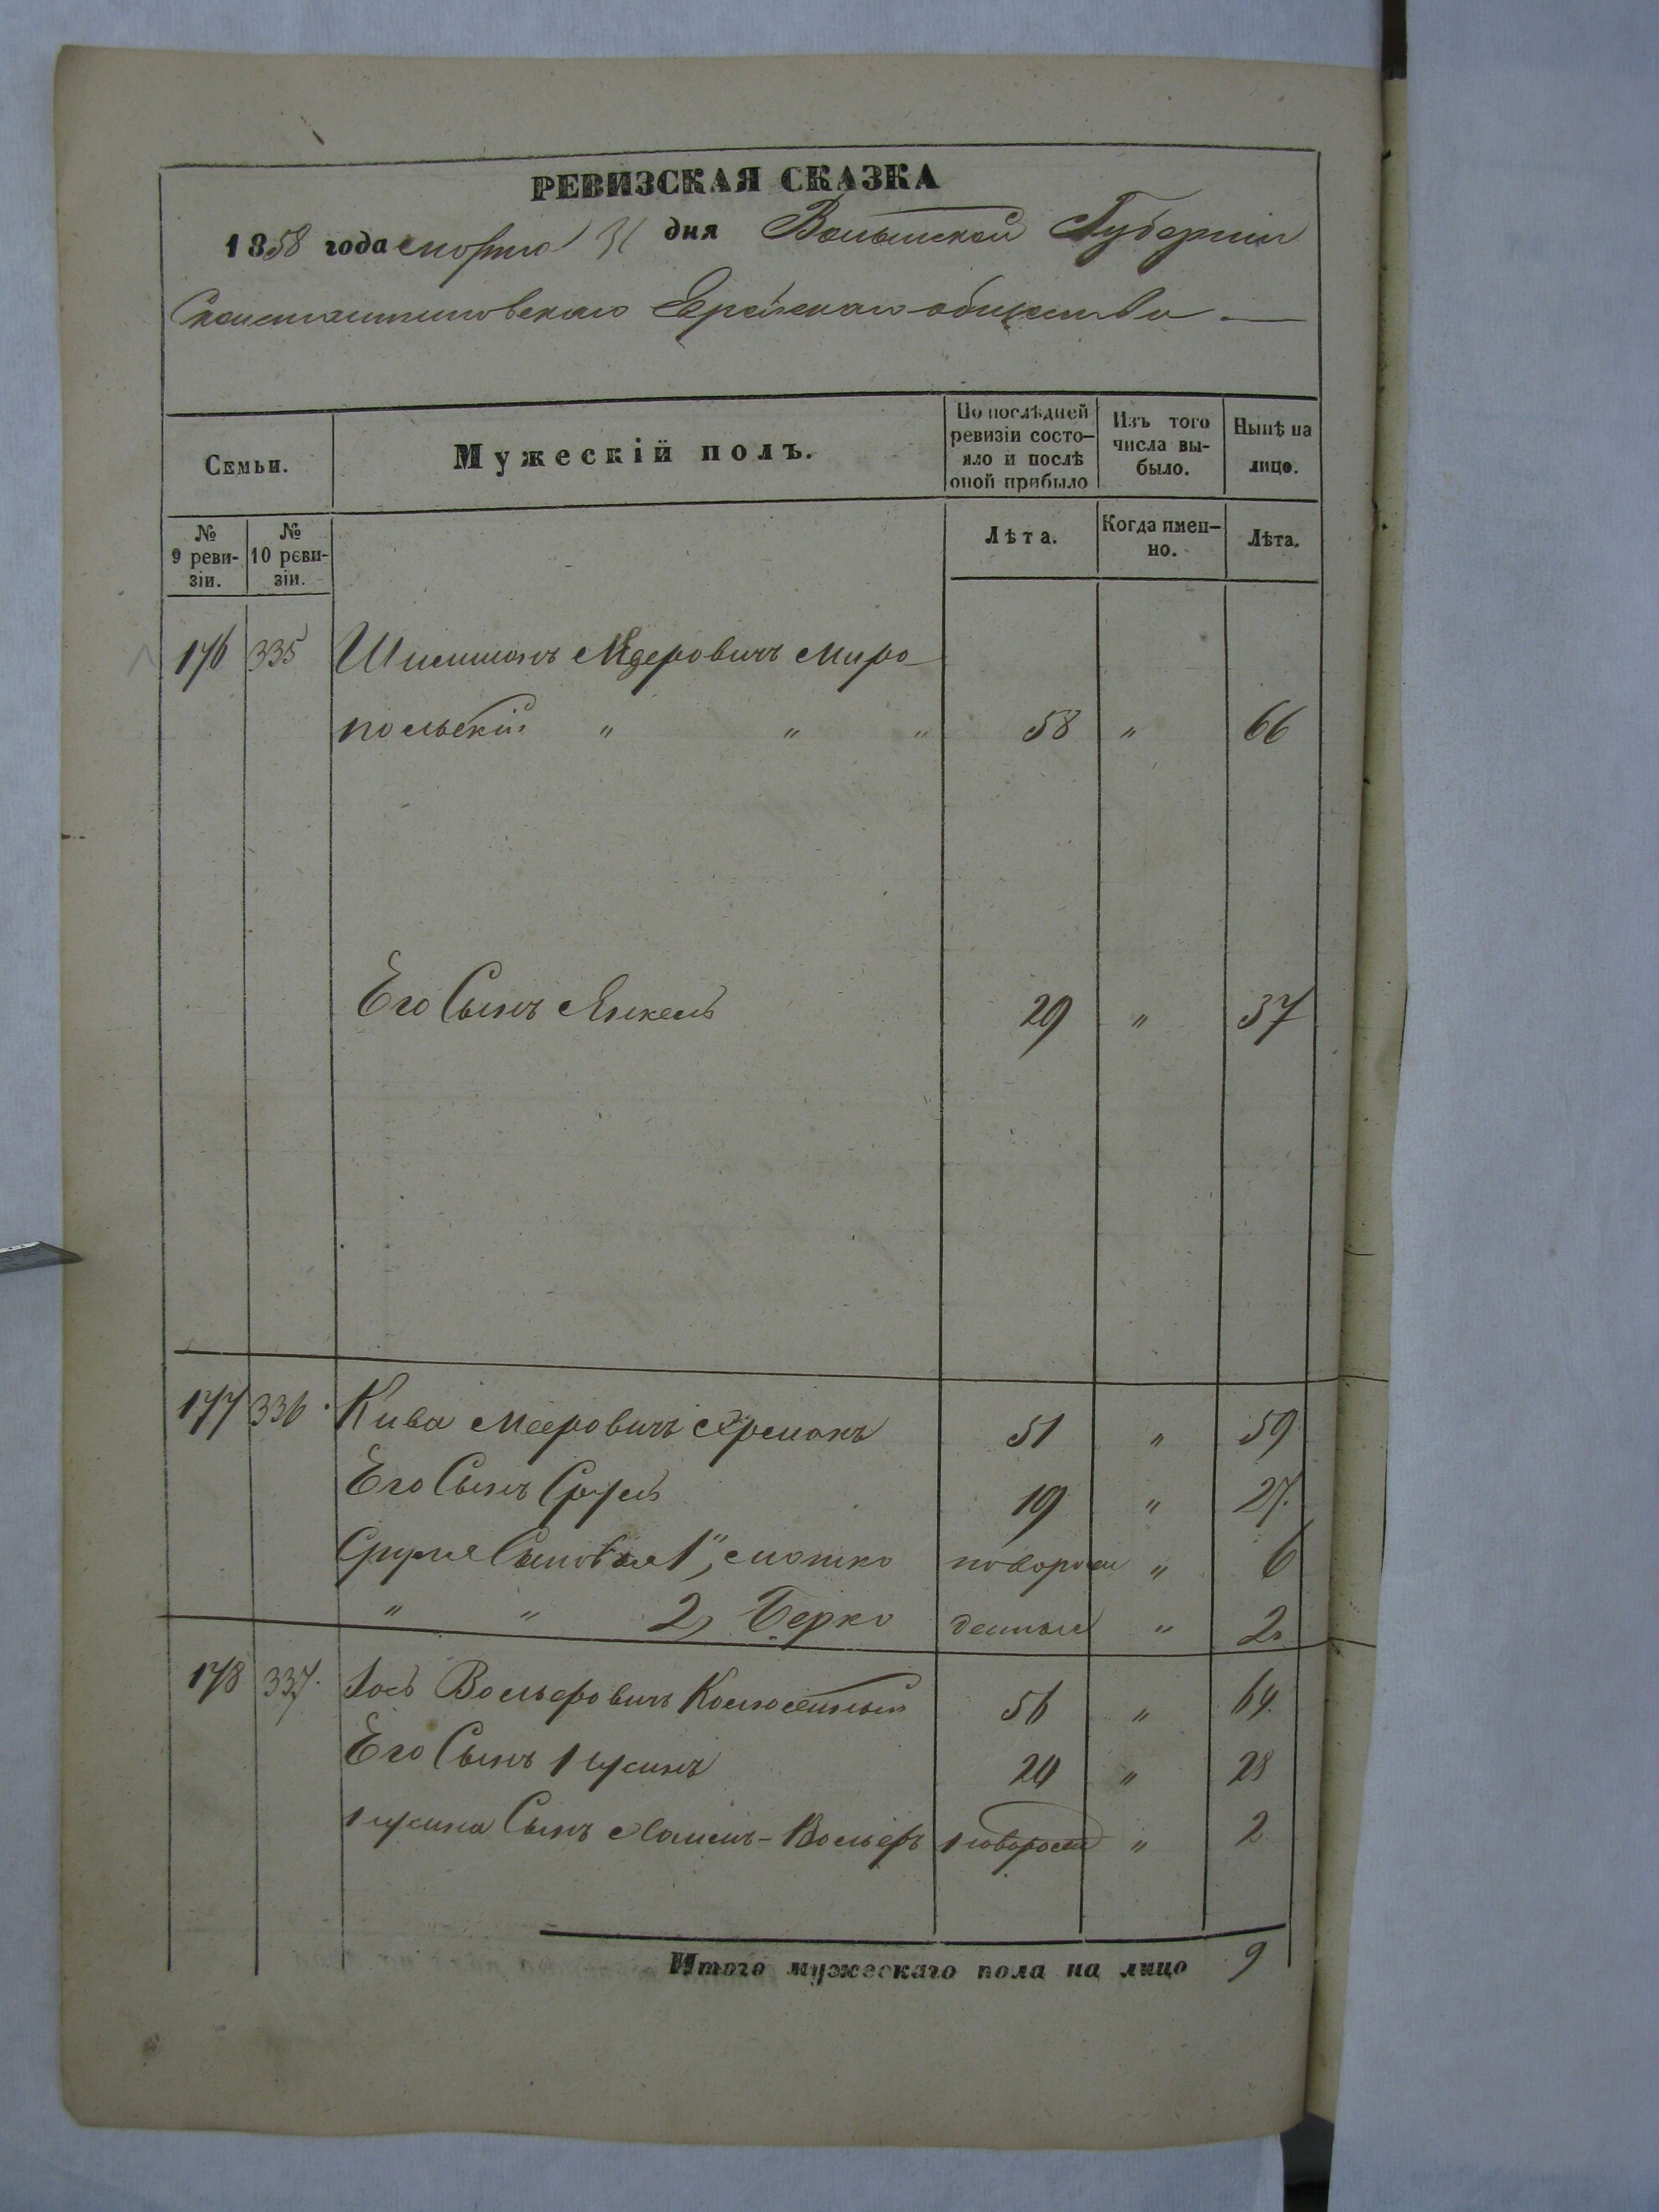 РЕВИЗСКАЯ СКАЗКА
1858 года марта 31 дня Волынской Губернии
Еврейскаго общества
Семьи.
Мужескій полъ.
По послѣдней ревизіи состо-
яло и послѣ оной прибыло
Изъ того числа вы-
было.
Нынѣ на лицо.
№ 9 реви-
зіи.
№ 10 реви-
зіи.
Лѣта.
Когда имен-
но.
Лѣта.
176 335 Меeровичъ Миро
польскій " " " 58 " 66
Его Сынъ Янкель 29 " 37
177 336 Кива Мееровичъ 51 " 59
Его Сынъ Сруль 19 " 27
Сруля Сыновья 1, Мошко новорож " 6
" " 2, Берко денные " 2
178 337 Іось Вольфовичъ 56 " 64
Его Сынъ 20 " 28
Сынъ Вольфъ новорож " 2
Итого мужескаго пола на лицо 9